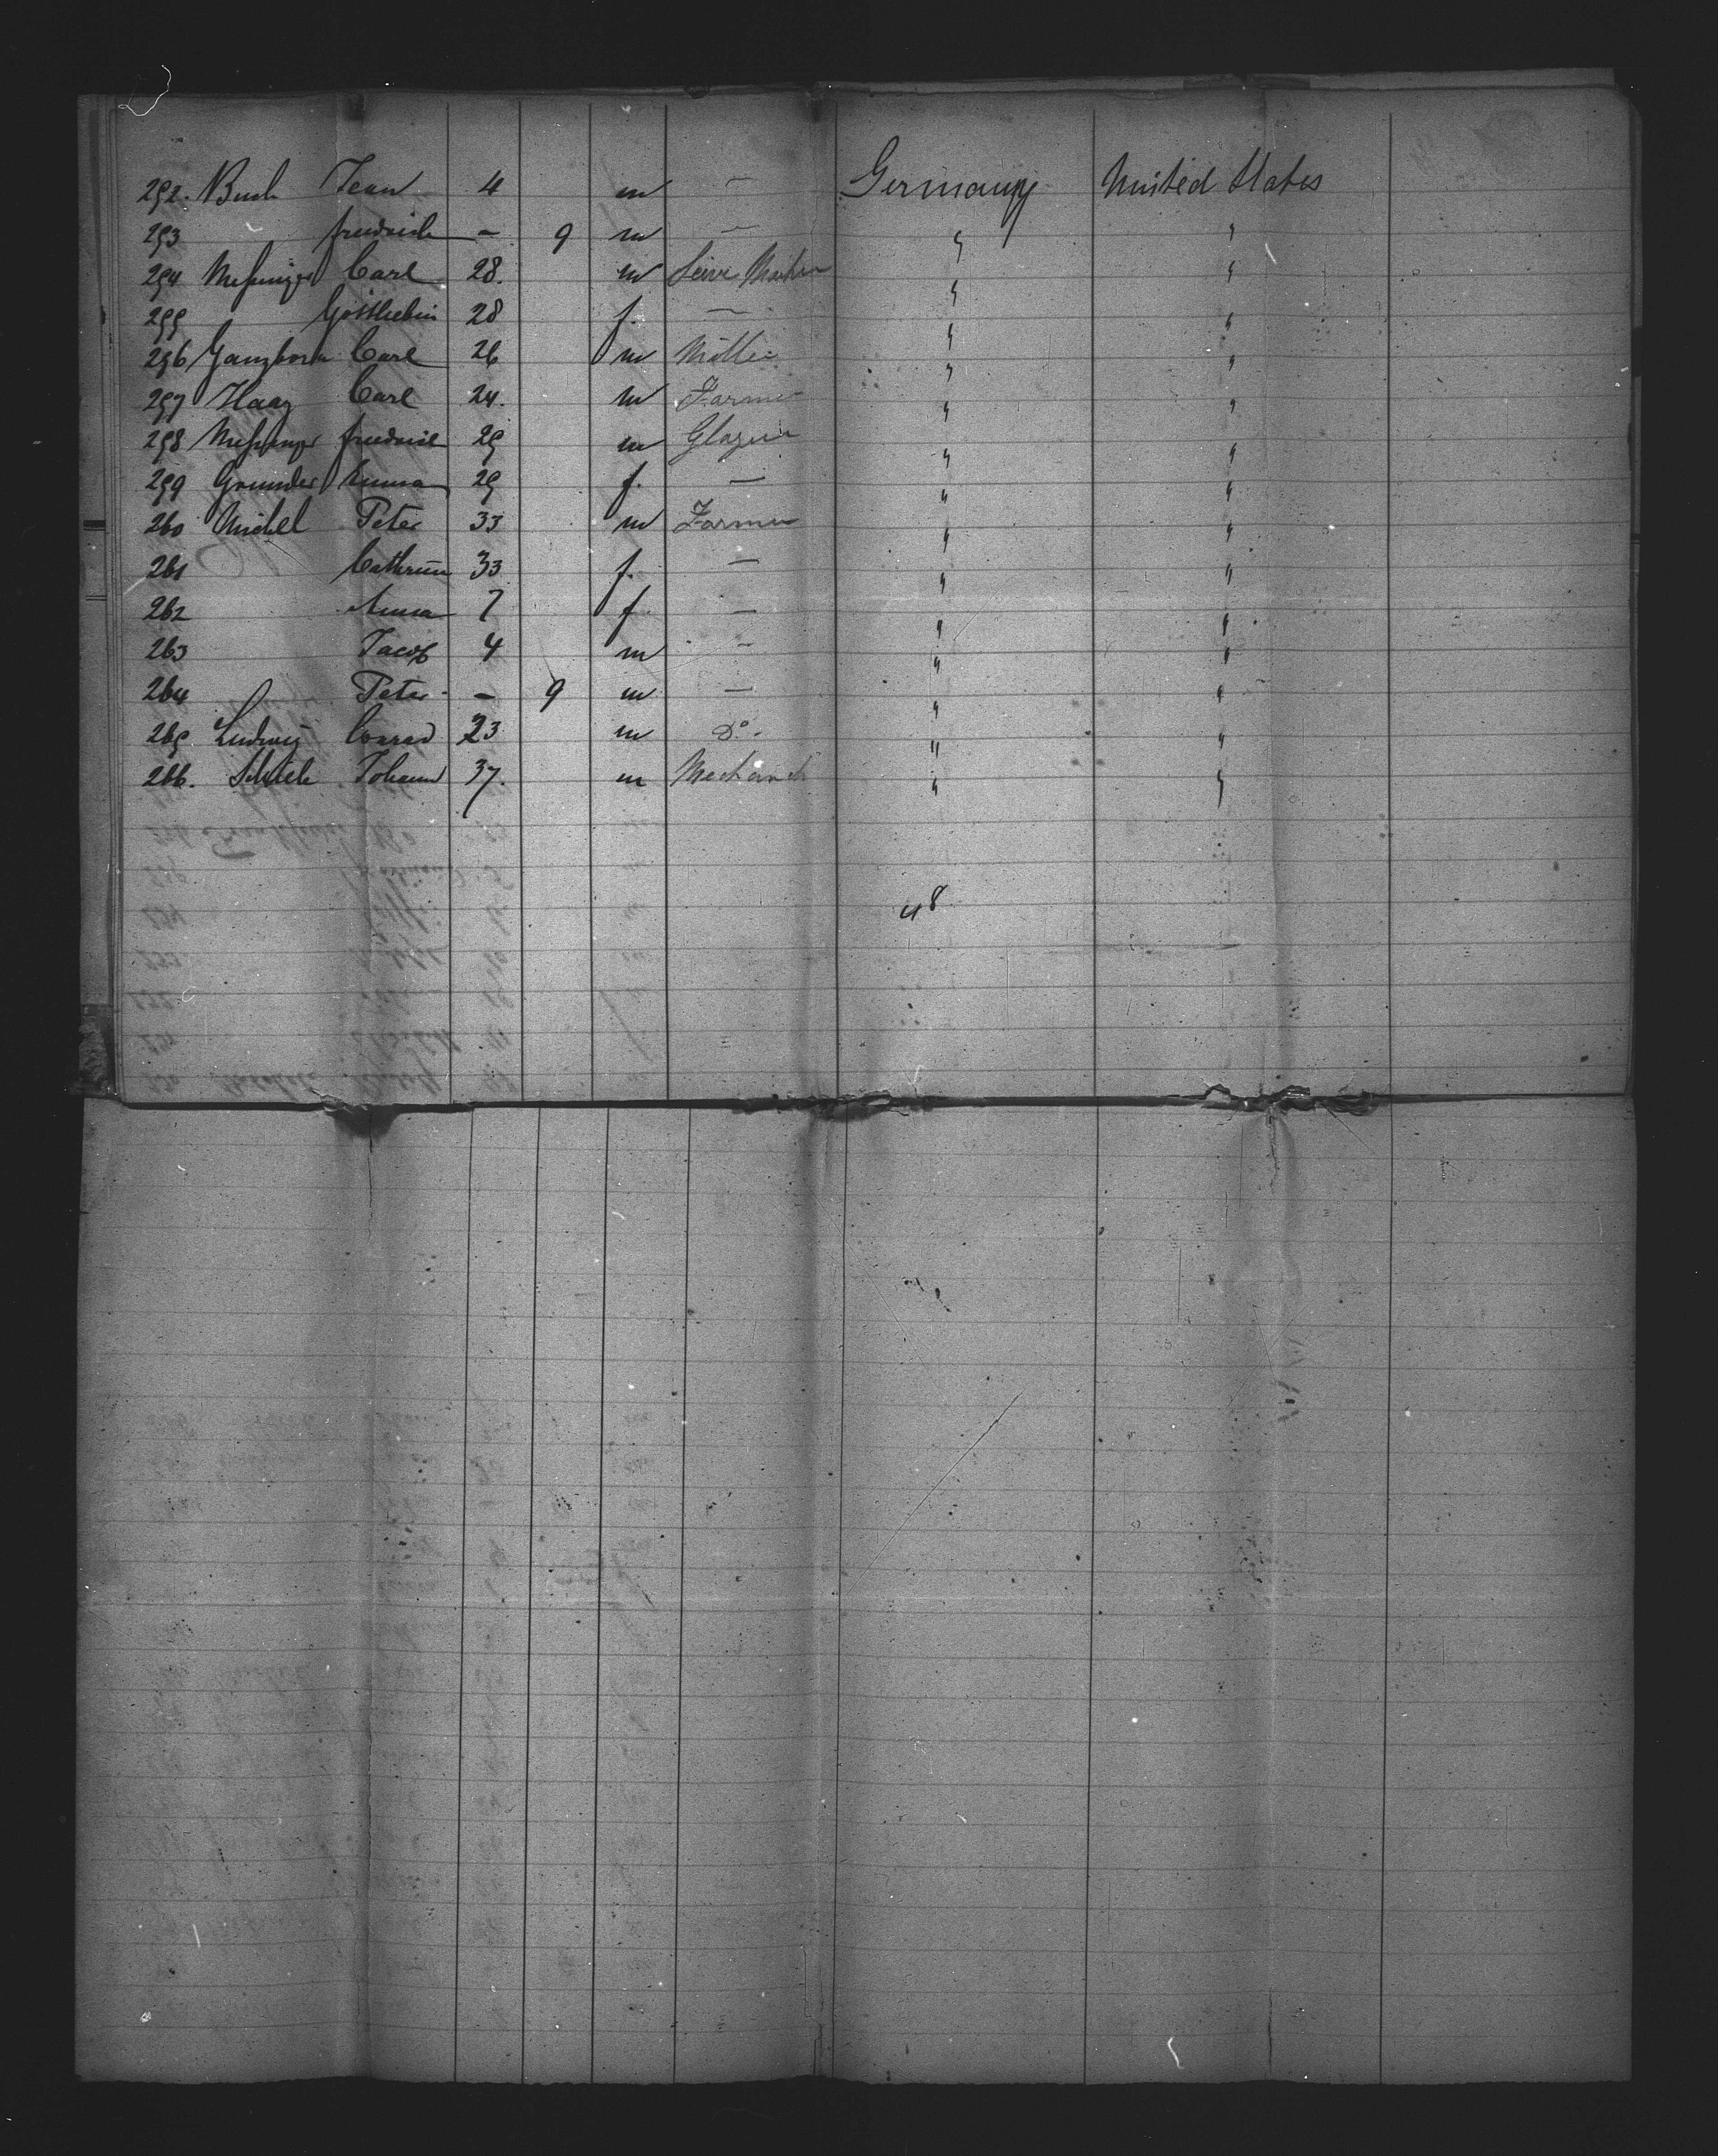 252. Buch Jean 4 m — Germany United States
253 Friedrich — 9 m — " "
254 Meßinger Carl 28. m " "
255 Gottliebin 28 f. — " "
256 Ganzhorn Carl 26 m Miller " "
257 Haag Carl 24. m Farmer " "
258 Meßinger Friedrich 25 m Glazier " "
259 Anna 25 f. — " "
260 Michel Peter 33 m Farmer " "
261 Cathrine 33 f. — " "
262 Anna 7 f — " "
263 Jacob 4 m — " "
264 Peter — 9 m — " "
265 Ludwig Conrad 23 m Do. " "
266. Johann 37. m Mechanick " "
48